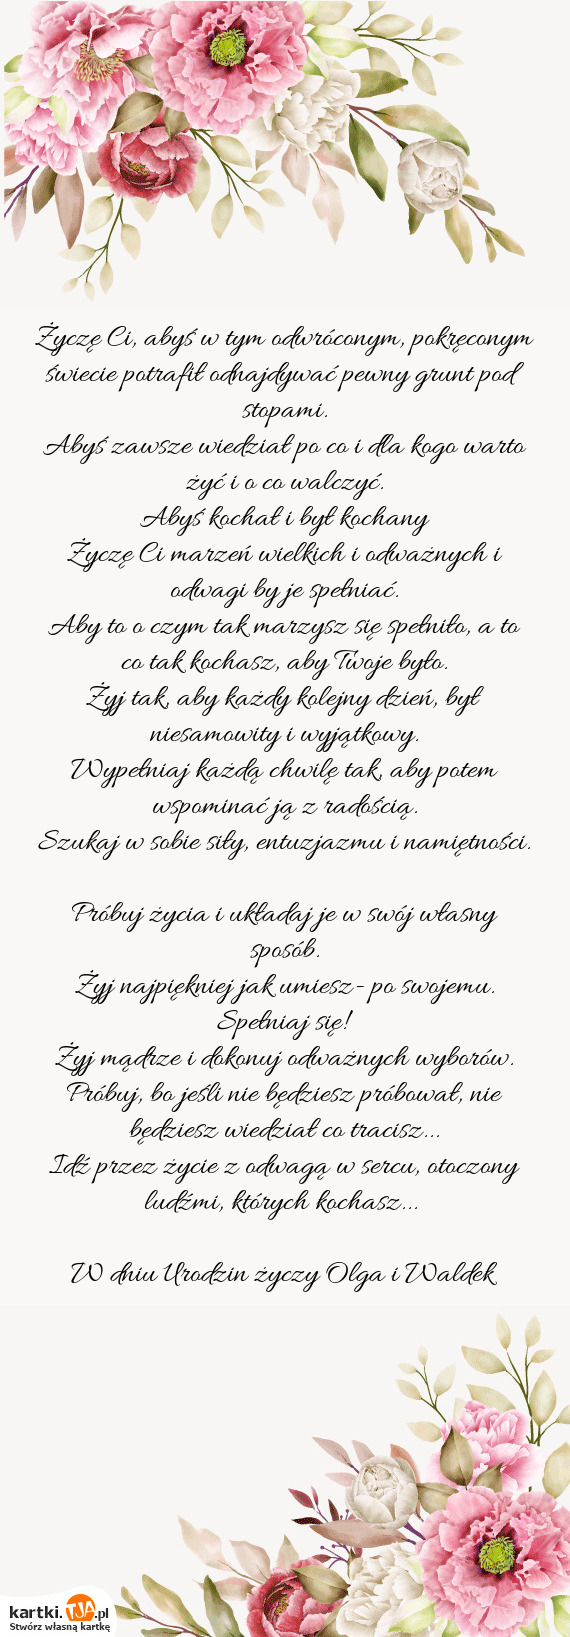 Życzę Ci, abyś w tym odwróconym, pokręconym
świecie potrafił odnajdywać pewny grunt pod
stopami.
Abyś zawsze wiedział po co i dla kogo warto
żyć i o co walczyć.
Abyś kochał i był kochany
Życzę Ci marzeń wielkich i odważnych i
odwagi by je spełniać.
Aby to o czym tak marzysz się spełniło, a to
co tak kochasz, aby Twoje było.
Żyj tak, aby każdy kolejny dzień, był
niesamowity i wyjątkowy.
Wypełniaj każdą chwilę tak, aby potem
wspominać ją z radością.
Szukaj w sobie siły, entuzjazmu i namiętności.
Próbuj życia i układaj je w swój własny
sposób.
Żyj najpiękniej jak umiesz - po swojemu.
Spełniaj się!
Żyj mądrze i dokonuj odważnych wyborów.
Próbuj, bo jeśli nie będziesz próbował, nie
będziesz wiedział co tracisz...
Idź przez życie z odwagą w sercu, otoczony
ludźmi, których kochasz...
W dniu Urodzin życzy Olga i Waldek
kartki.TJA.pl
Stwórz własną kartkę